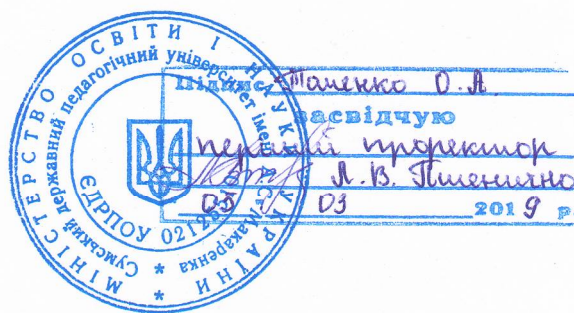 МІНІСТЕРСТВО ОСВІТИ І НАУКИ УКРАЇНИ *
Сумський державний педагогічний університет імені А.С. Макаренка *
ЄДРПОУ
Підпис О.А.
засвідчую
перший проректор
Л.В. Пшенична
03 2019 р